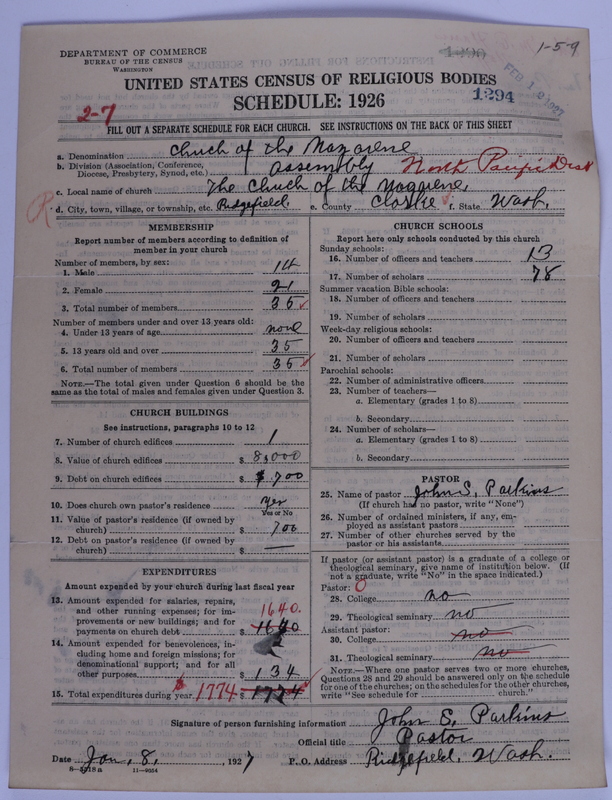 DEPARTMENT OF COMMERCE
BUREAU OF THE CENSUS
WASHINGTON
1-5-9
FEB 12 1927
UNITED STATES CENSUS OF RELIGIOUS BODIES
SCHEDULE: 1926
1294
2-7
FILL OUT A SEPARATE SCHEDULE FOR EACH CHURCH. SEE INSTRUCTIONS ON THE BACK OF THIS SHEET
a. Denomination Chuch of the Nazarene
b. Division (Association, Conference, Diocese, Presbytery, Synod, etc.) Assembly North Pacific Dist
c. Local name of church The Chuch of the Nazarene,
d. City, town, village, or township, etc. Ridgefield, e. County Clarke f. State Wash,
MEMBERSHIP
Report number of members according to definition of
member in your church
Number of members, by sex:
1. Male 14
2. Female 21
3. Total number of members 35
Number of members under and over 13 years old:
4. Under 13 years of age none
5. 13 years old and over 35
6. Total number of members 35
NOTE.—The total given under Question 6 should be the
same as the total of males and females given under Question 3.
CHURCH BUILDINGS
See instructions, paragraphs 10 to 12
7. Number of church edifices 1
8. Value of church edifices $ 8,000
9. Debt on church edifices $ $,700
10. Does church own pastor's residence yes
Yes or No
11. Value of pastor's residence (if owned by
church) $ 700
12. Debt on pastor's residence (if owned by
church) $ —
EXPENDITURES
Amount expended by your church during last fiscal year
13. Amount expended for salaries, repairs,
and other running expenses; for im-
provements or new buildings; and for
payments on church debt $ 1640 1640.
14. Amount expended for benevolences, in-
cluding home and foreign missions; for
denominational support; and for all
other purposes $ 134
15. Total expenditures during year $ 1774 $ 1774
CHURCH SCHOOLS
Report here only schools conducted by this church
Sunday schools:
16. Number of officers and teachers 13
17. Number of scholars 78
Summer vacation Bible schools:
18. Number of officers and teachers
19. Number of scholars
Week-day religious schools:
20. Number of officers and teachers
21. Number of scholars
Parochial schools:
22. Number of administrative officers
23. Number of teachers—
a. Elementary (grades 1 to 8)
b. Secondary
24. Number of scholars—
a. Elementary (grades 1 to 8)
b. Secondary
PASTOR
25. Name of pastor John S. Parkins
(If church has no pastor, write "None")
26. Number of ordained ministers, if any, em-
ployed as assistant pastors
27. Number of other churches served by the
pastor or his assistants
If pastor (or assistant pastor) is a graduate of a college or
theological seminary, give name of institution below. (If
not a graduate, write "No" in the space indicated.)
Pastor: 0
28. College no
29. Theological seminary no
Assistant pastor:
30. College no
31. Theological seminary no
NOTE.—Where one pastor serves two or more churches,
Questions 28 and 29 should be answered only on the schedule
for one of the churches; on the schedules for the other churches,
write "See schedule for church."
Signature of person furnishing information John S. Parkins
Official title Pastor
Date Jan, 8, 1927 P. O. Address Ridgefield, Wash.
8—5218 a 11—9054